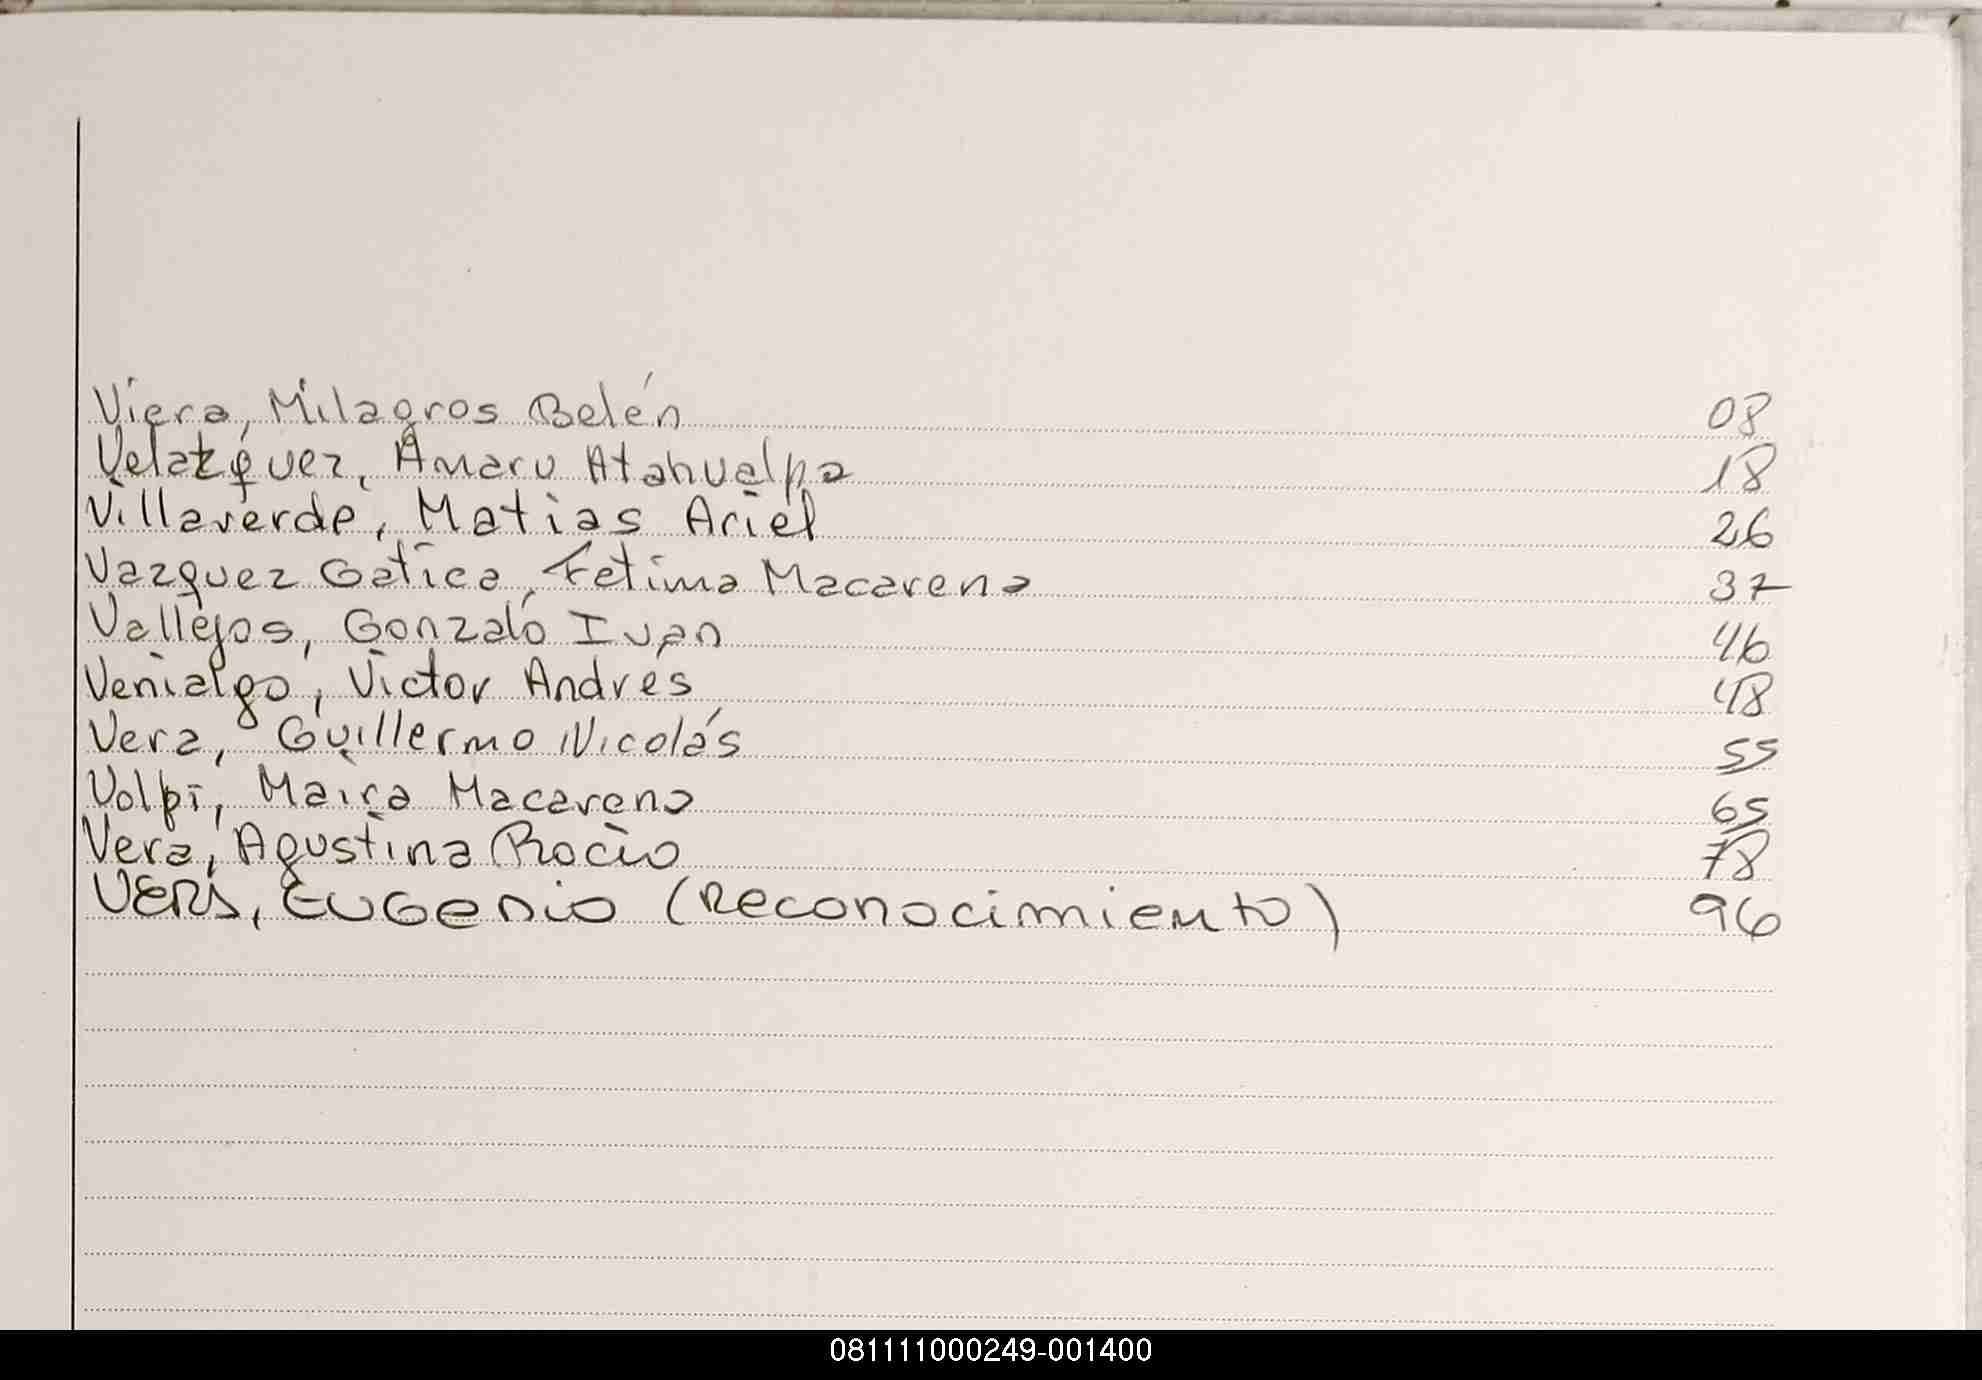 Viera, Milagros Belén 08
Velazquez, Amaru Atahualpa 18
Villaverde, Matias Ariel 26
Vazquez Gatica, Fatima Macarena 37
Vallejos, Gonzalo Ivan 46
Venialgo, Victor Andrés 48
Vera, Guillermo Nicolás 55
Volpi, Maira Macarena 65
Vera, Agustina Rocio 78
VERA, EUGenio (Reconocimiento) 96
081111000249-001400